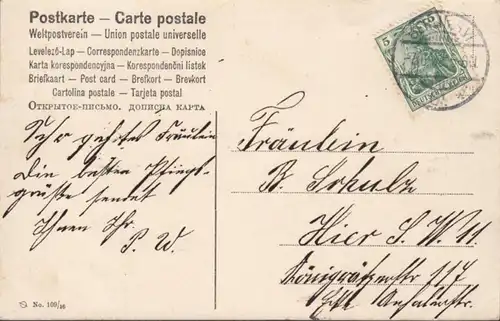 Postkarte – Carte postale
Weltpostverein – Union postale universelle
Levelező-Lap – Correspondenzkarte – Dopisnice
Karta korespondencyjna – Korespondenční listek
Briefkaart – Post card – Brefkort – Brevkort
Cartolina postale – Tarjeta postal
Открытое-письмо. дописна карта
Sehr geehrtes Fräulein
Die besten Pfingst-
grüße sendet
Ihnen Ihr
P. W.
5
Fräulein
B. Schulz
Hier S. W. 11
Königgrätzerstr 117
Ecke Anhalterstr.
No. 109/06